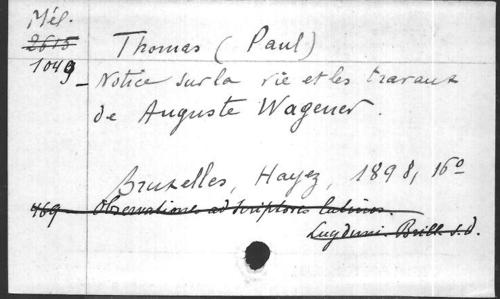 Mél.
2615
1049
Thomas (Paul)
- Notice sur la vie et les travaux
de Auguste Wagener.
Bruxelles, Hayez, 1898, 16o
469 Observationes ad scriptores latinos.
Lugduni-Brill. s.d.